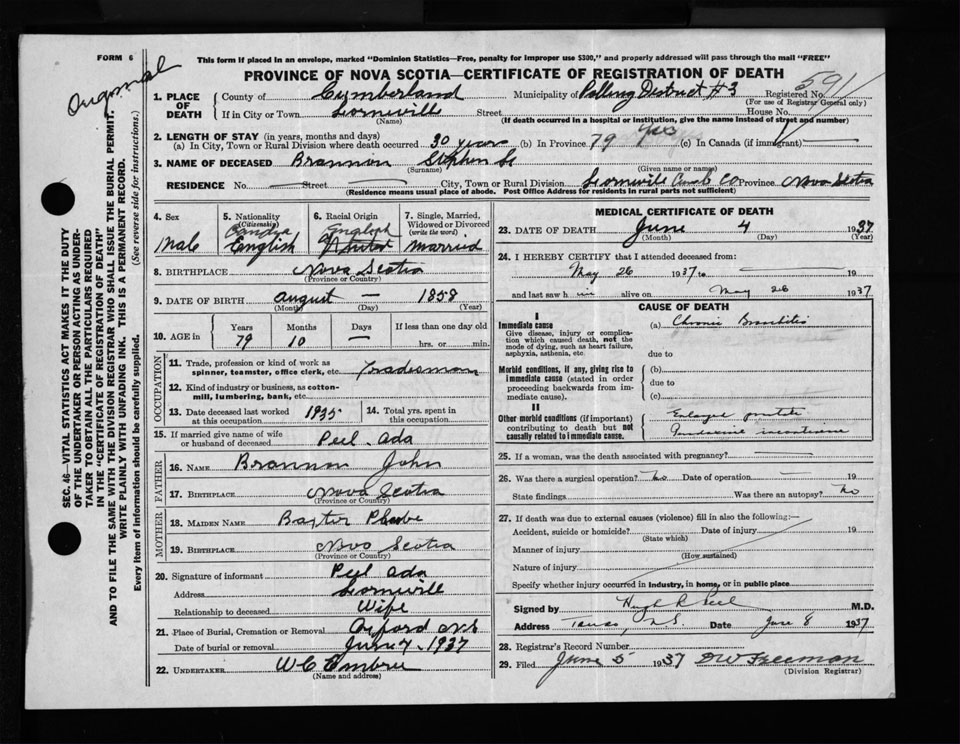 FORM 6
This form if placed in an envelope, marked "Dominion Statistics—Free, penalty for improper use $300," and properly addressed will pass through the mail "FREE"
Original
PROVINCE OF NOVA SCOTIA—CERTIFICATE OF REGISTRATION OF DEATH
591
1. PLACE OF DEATH
County of Cumberland Municipality of Polling District #3 Registered No.
(For use of Registrar General only)
If in City or Town Street House No.
(Name) (If death occurred in a hospital or institution, give the name instead of street and number)
2. LENGTH OF STAY (in years, months and days)
(a) In City, Town or Rural Division where death occurred 30 years (b) In Province 79 yrs (c) In Canada (if immigrant)
3. NAME OF DECEASED Brannon Stephen
(Surname) (Given name or names)
RESIDENCE No. Street City, Town or Rural Division Cumb Co Province Nova Scotia
(Residence means usual place of abode. Post Office Address for residents in rural parts not sufficient)
4. Sex
Male
5. Nationality
(Citizenship)
English
6. Racial Origin
English
7. Single, Married, Widowed or Divorced
(write the word)
married
8. BIRTHPLACE Nova Scotia
(Province or Country)
9. DATE OF BIRTH August — 1858
(Month) (Day) (Year)
10. AGE in
Years Months Days If less than one day old
79 10 — hrs. or min.
OCCUPATION
11. Trade, profession or kind of work as spinner, teamster, office clerk, etc. Tradesman
12. Kind of industry or business, as cotton-mill, lumbering, bank, etc.
13. Date deceased last worked at this occupation 1935
14. Total yrs. spent in this occupation
15. If married give name of wife or husband of deceased Peel Ada
FATHER
16. NAME Brannon John
17. BIRTHPLACE Nova Scotia
(Province or Country)
MOTHER
18. MAIDEN NAME Baxter Phoebe
19. BIRTHPLACE Nova Scotia
(Province or Country)
20. Signature of informant Peel Ada
Address
Relationship to deceased Wife
21. Place of Burial, Cremation or Removal Oxford N.S
Date of burial or removal June 7 1937
22. UNDERTAKER W C Embree
(Name and address)
MEDICAL CERTIFICATE OF DEATH
23. DATE OF DEATH June 4 1937
(Month) (Day) (Year)
24. I HEREBY CERTIFY that I attended deceased from:
May 26 1937 to 19
and last saw h im alive on May 26 1937
CAUSE OF DEATH
I
Immediate cause
Give disease, injury or complication which caused death, not the mode of dying, such as heart failure, asphyxia, asthenia, etc.
(a) Chronic Bronchitis
due to
Morbid conditions, if any, giving rise to immediate cause (stated in order proceeding backwards from immediate cause).
(b)
due to
(c)
II
Other morbid conditions (if important) contributing to death but not causally related to immediate cause.
Enlarged prostate
incontinence
25. If a woman, was the death associated with pregnancy?
26. Was there a surgical operation? No Date of operation 19
State findings Was there an autopsy? No
27. If death was due to external causes (violence) fill in also the following:—
Accident, suicide or homicide? Date of injury 19
(State which)
Manner of injury
(How sustained)
Nature of injury
Specify whether injury occurred in industry, in home, or in public place
Signed by Hugh R Peel M.D.
Address Truro, N.S. Date June 8 1937
28. Registrar's Record Number
29. Filed June 5 1937 D W Freeman
(Division Registrar)
SEC. 46—VITAL STATISTICS ACT MAKES IT THE DUTY
OF THE UNDERTAKER OR PERSON ACTING AS UNDER-
TAKER TO OBTAIN ALL THE PARTICULARS REQUIRED
IN THE "CERTIFICATE OF REGISTRATION OF DEATH"
AND TO FILE THE SAME WITH THE DIVISION REGISTRAR WHO SHALL ISSUE THE BURIAL PERMIT.
WRITE PLAINLY WITH UNFADING INK. THIS IS A PERMANENT RECORD.
Every item of information should be carefully supplied. (See reverse side for instructions.)